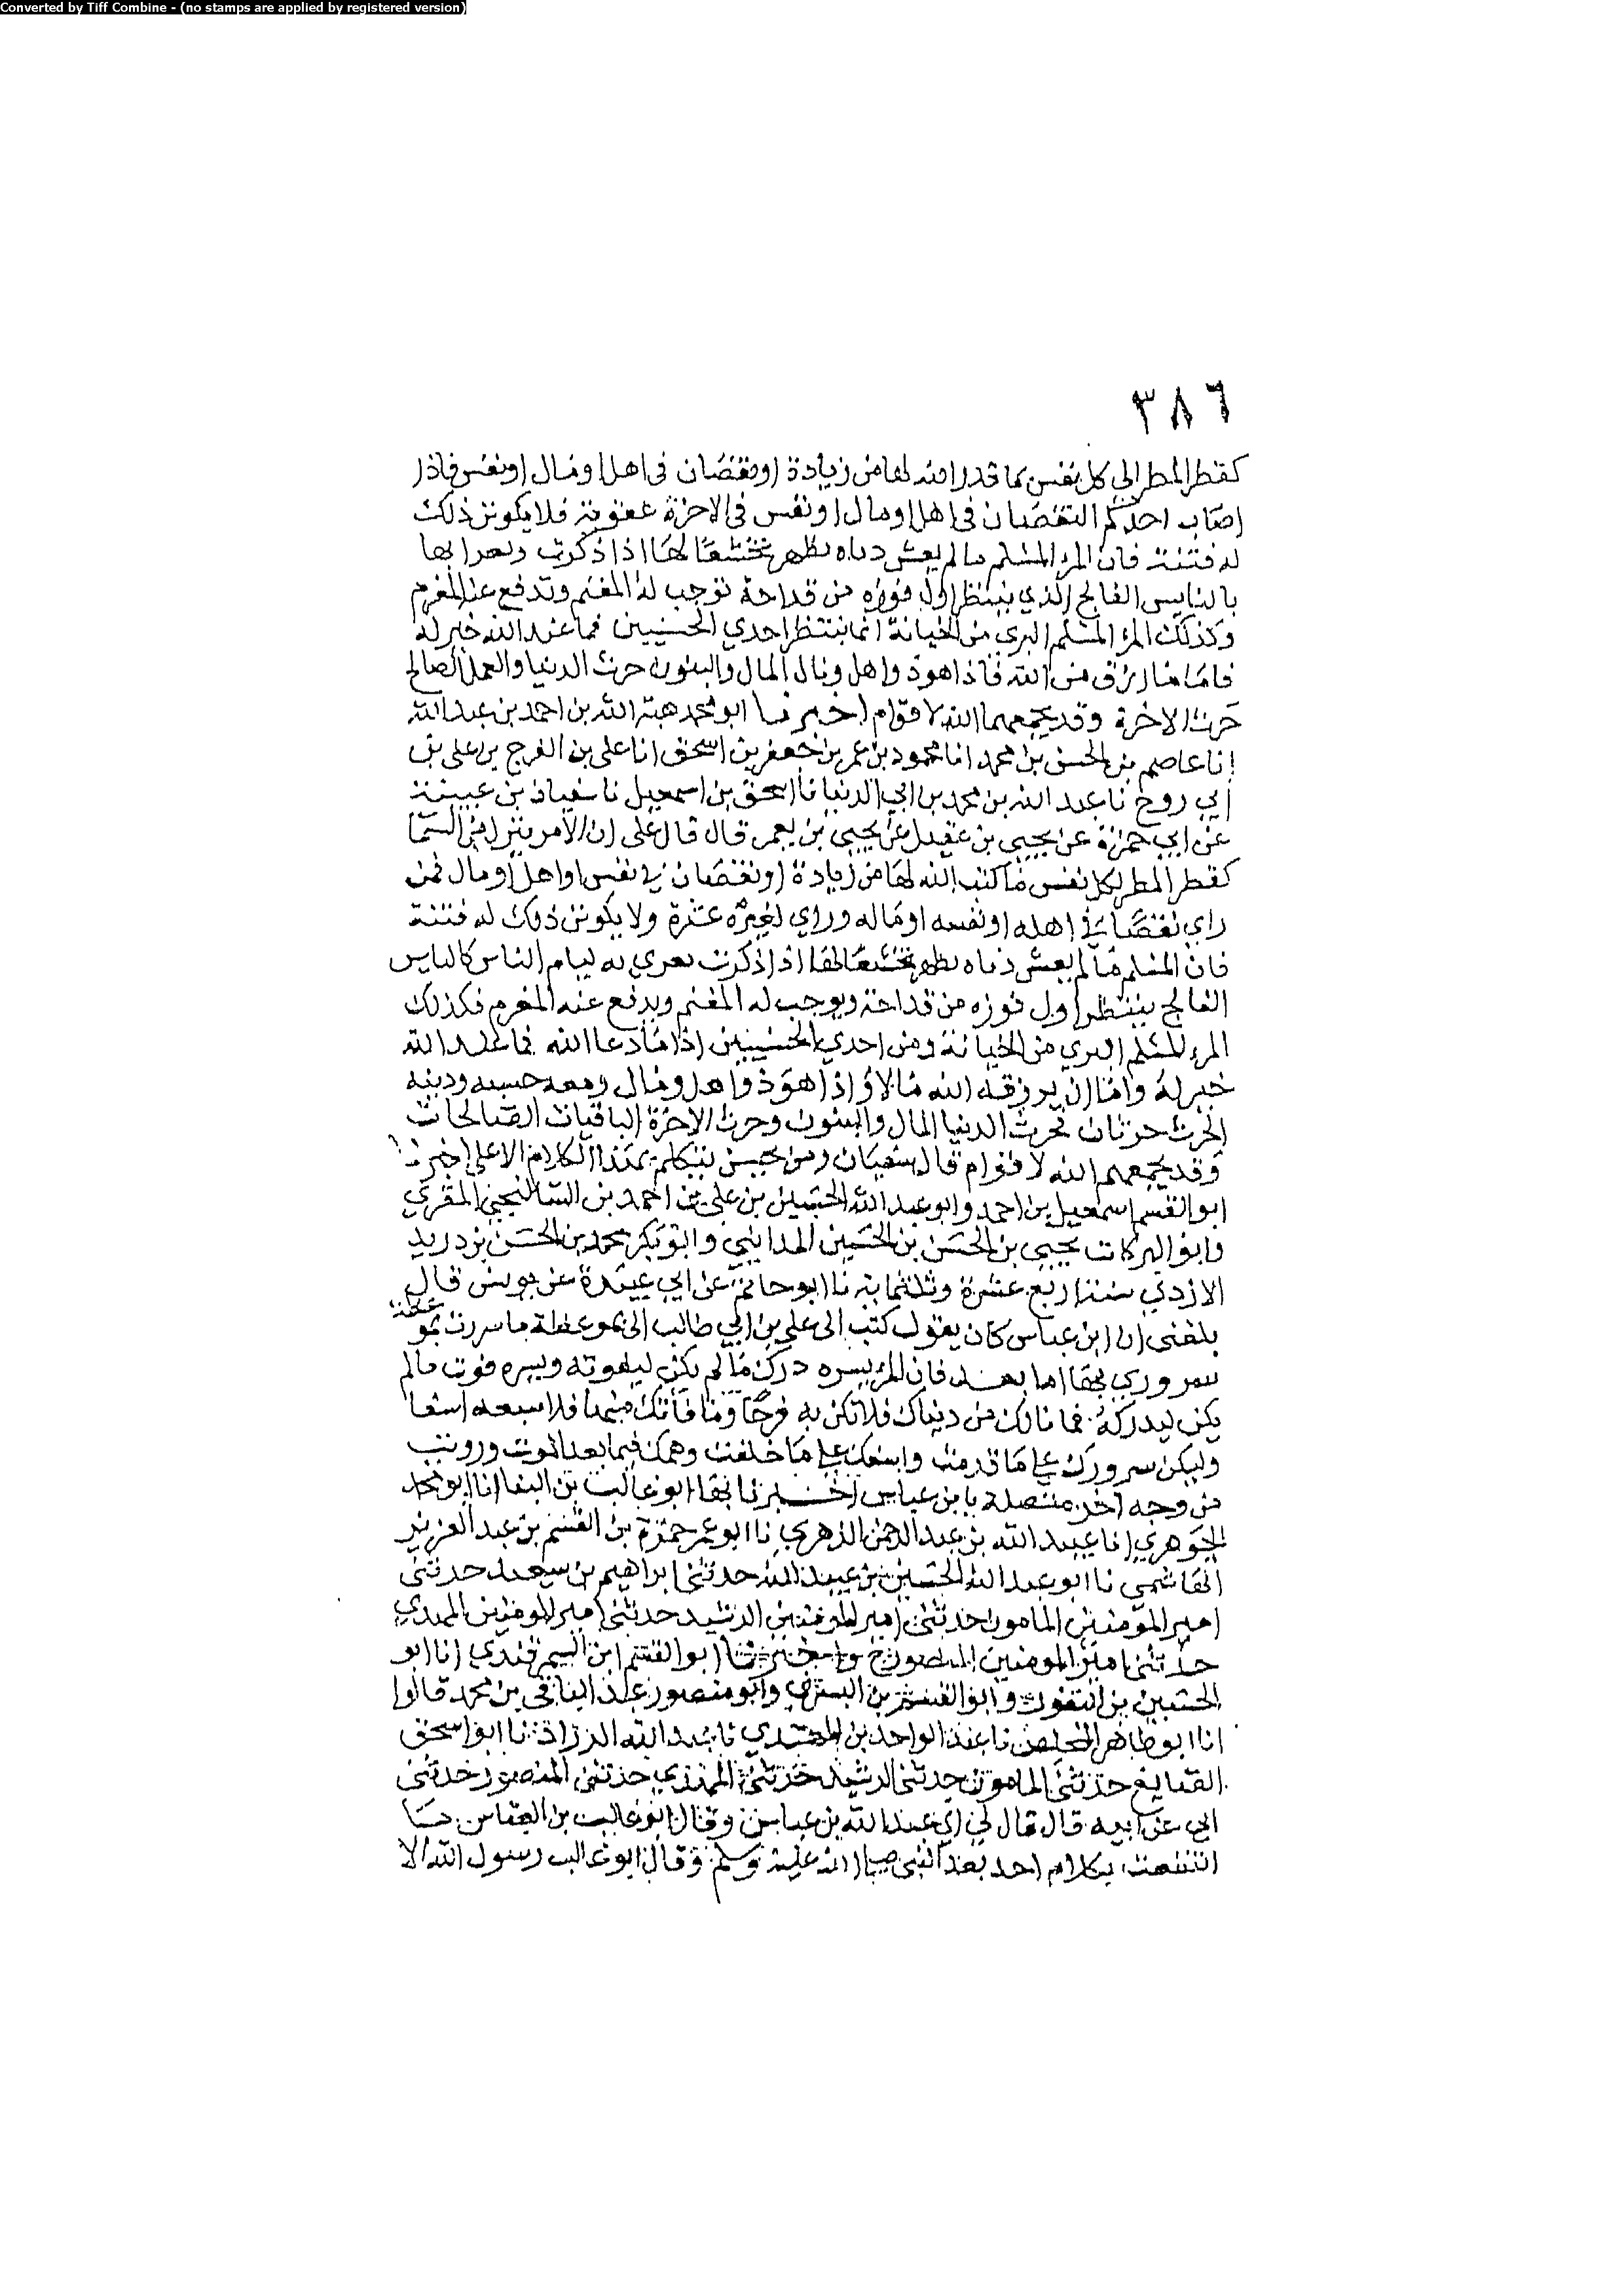 Converted by Tiff Combine - (no stamps are applied by registered version)
٣٨٦
كقطر المطر الى كل نفس بما قدر الله لها من زيادة او نقصان فى اهل او مال او نفس فاذا
اصاب احدكم النقصان فى اهل او مال او نفس فى الاخرة عقوبة فلا يكونن ذلك
له فتنة فان المرء المسلم ما لم يغش دناه يظهر تخشعا لها اذا ذكرت ويغرا بها
بالناس الفالج الذي ينتظر اول فوزه من قداحة توجب له المغنم وتدفع عنه المغرم
وكذلك المرء المسلم البرى من الخيانة انما ينتظر احدي الحسنيين فما عند الله خير له
فاما يرزق من الله فاذا هو ذو اهل ومال المال والبنون حرث الدنيا والعمل الصالح
حرث الاخرة وقد يجمعهما الله لاقوام اخبرنا ابو محمد هبة الله بن احمد بن عبد الله
انا عاصم بن الحسن بن محمد انا محمود بن عمر بن جعفر بن اسحق انا على بن الفرج بن على بن
ابي روح نا عبد الله بن محمد بن ابي الدنيا نا اسحق بن اسمعيل نا سفيان بن عيينة
عن ابي حمزة عن يحيى بن عقيل عن يحيى بن يعمر قال قال على ان الامر ينزل من السما
كقطر المطر لكل نفس ما كتب الله لها من زيادة او نقصان في نفس او اهل او مال فمن
راي نقصا في اهله او نفسه او ماله وراي لغيره عثرة ولا يكونن ذلك له فتنة
فان المسلم ما لم يغش دناه يظهر تخشعا لها اذا ذكرت يغري به ليام الناس كالياسر
الفالج ينتظر اول فوزه من قداحة ويوجب له المغنم ويدفع عنه المغرم فكذلك
المرء المسلم البري من الخيانة ومن احدي الحسنيين اذا ما دعا الله فما عند الله
خير له واما ان يرزقه الله مالا فاذا هو ذو اهل ومال ومعه حسبه ودينه
الحرث حرثان فحرث الدنيا المال والبنون وحرث الاخرة الباقيات الصالحات
وقد يجمعهم الله لاقوام قال سفيان ومن يحسن يتكلم بهذا الكلام الا على اخبرنا
ابو القسم اسمعيل بن احمد وابو عبد الله الحسين بن على بن احمد بن المقري
وابو البركات يحيى بن الحسن بن الحسين المدايني وابو بكر محمد بن الحسن بن دريد
الازدي سنة اربع عشرة وثلثماية نا ابو حاتم عن ابي عبيدة عن يونس قال
بلغنى ان ابن عباس كان يقول كتب الى على بن ابي طالب الى بموعظة ما سررت بموعظة
سروري بها اما بعد فان المرء يسره درك ما لم يكن ليفوته ويسره فوت ما لم
يكن ليدركه فما نالك من دنياك فلا تكن به فرحا وما فاتك منها فلا تتبعه اسفا
وليكن سرورك على ما قدمت واسفك على ما خلفت وهمك فيما بعد الموت ورويت
من وجه اخر متصلة بابن عباس اخبرنا بها ابو غالب بن البنا انا ابو محمد
الجوهري انا عبيد الله بن عبد الرحمن الزهري نا ابو عمر حمزة بن القسم بن عبد العزيز
الهاشمى نا ابو عبد الله الحسين بن عبيد الله حدثنى ابراهيم بن سعيد حدثنى
امير المؤمنين المامون حدثنى امير المومنين الرشيد حدثنى امير المومنين المهدي
حدثنى امير المومنين المنصور ح واخبرنا ابو القسم ابن السمرقندي انا ابو
الحسين بن النقور وابو القسم بن البسري وابو منصور عبد الباقى بن محمد قالوا
انا ابو طاهر المخلص نا عبد الواحد بن المهتدي نا عبد الله الرزاذ نا ابو اسحق
الصايغ حدثنى المامون حدثنى الرشيد حدثنى المهدي حدثنى المنصور حدثنى
ابي عن ابيه قال قال لي ابي عبد الله بن عباس وقال ابو غالب بن العباس ما
انتفعت بكلام احد بعد النبى صلى الله عليه وسلم وقال ابو غالب رسول الله الا